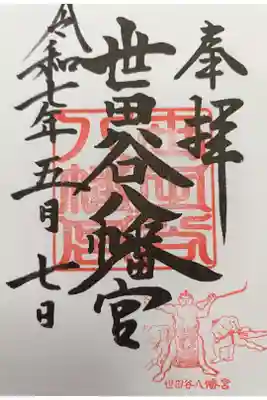 奉拝
世田谷八幡宮
令和七年五月七日
世田谷八幡宮